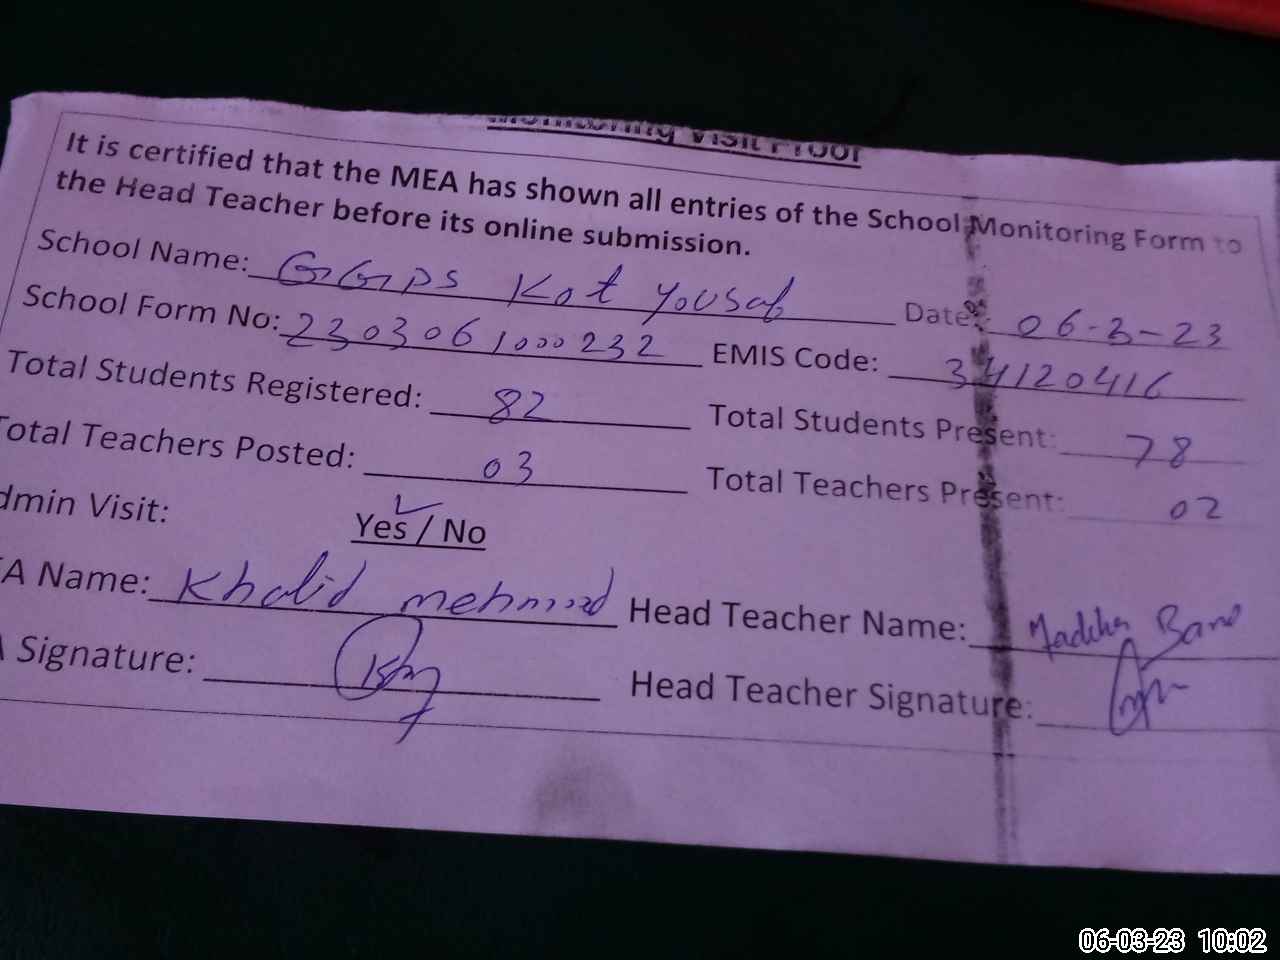 Monitoring Visit Proof
It is certified that the MEA has shown all entries of the School Monitoring Form to
the Head Teacher before its online submission.
School Name: GGPS Kot Yousaf Date: 06-3-23
School Form No: 2303061000232 EMIS Code: 34120416
Total Students Registered: 82 Total Students Present: 78
Total Teachers Posted: 03 Total Teachers Present: 02
dmin Visit: Yes / No
A Name: Khalid mehmood Head Teacher Name: Madiha Bano
Signature: Head Teacher Signature:
06-03-23 10:02